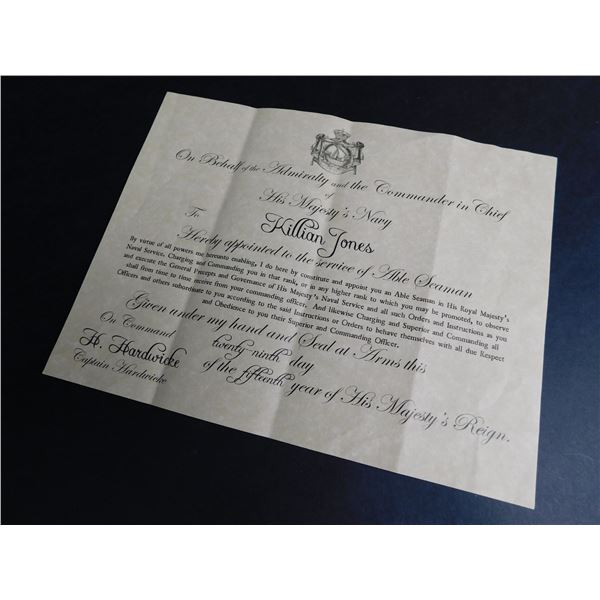 On Behalf of the Admiralty and the Commander in Chief
of
His Majesty's Navy
To Killian Jones
Hereby appointed to the service of Able Seaman
By virtue of all powers me hereunto enabling, I do here by constitute and appoint you an Able Seaman in His Royal Majesty's
Naval Service, Charging and Commanding you in that rank, or in any higher rank to which you may be promoted, to observe
and execute the General Precepts and Governance of His Majesty's Naval Service and all such Orders and Instructions as you
shall from time to time receive from your commanding officer. And likewise Charging and Superior and Commanding all
Officers and others subordinate to you according to the said Instructions or Orders to behave themselves with all due Respect
and Obedience to you their Superior and Commanding Officer.
Given under my hand and Seal at Arms this
On Command twenty ninth day
H. Hardwicke of the fifteenth year of His Majesty's Reign.
Captain Hardwicke